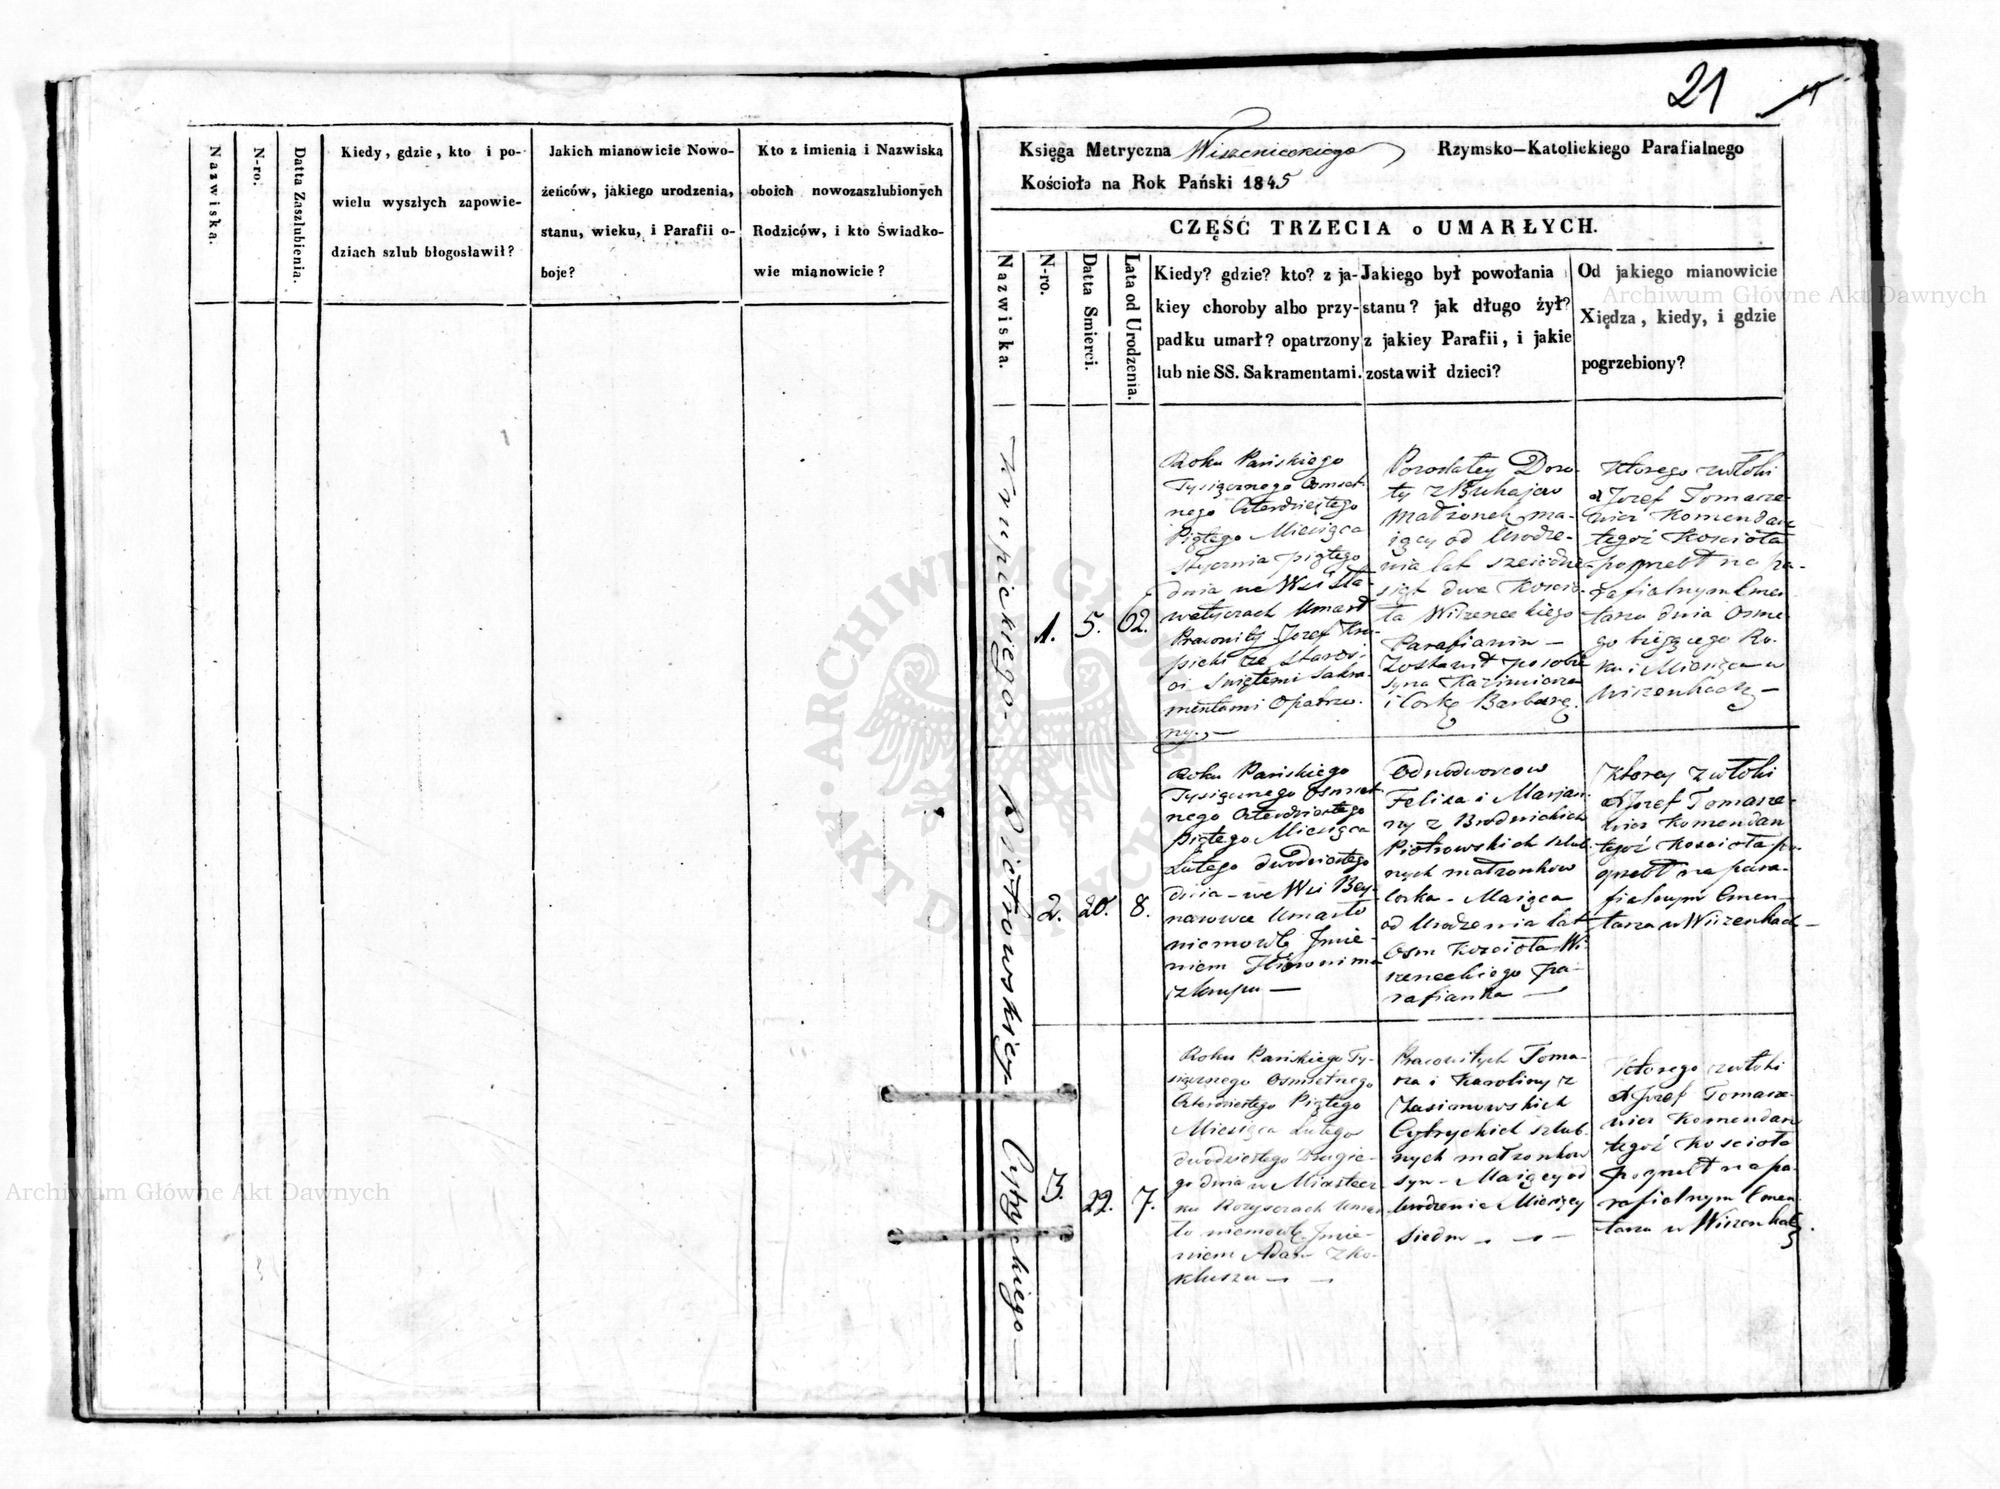 21
Nazwiska.
N-ro.
Datta Zaszlubienia.
Kiedy, gdzie, kto i po-
wielu wyszłych zapowie-
dziach szlub błogosławił?
Jakich mianowicie Nowo-
żeńców, jakiego urodzenia,
stanu, wieku, i Parafii o-
boje?
Kto z imienia i Nazwiska
oboich nowozaszlubionych
Rodziców, i kto Świadko-
wie mianowicie?
Księga Metryczna Wiszenieckiego Rzymsko-Katolickiego Parafialnego
Kościoła na Rok Pański 1845
CZĘŚĆ TRZECIA o UMARŁYCH.
Nazwiska.
N-ro.
Datta Smierci.
Lata od Urodzenia.
Kiedy? gdzie? kto? z ja-
kiey choroby albo przy-
padku umarł? opatrzony
lub nie SS. Sakramentami.
Jakiego był powołania
stanu? jak długo żył?
z jakiey Parafii, i jakie
zostawił dzieci?
Od jakiego mianowicie
Xiędza, kiedy, i gdzie
pogrzebiony?
Krupickiego
1.
5.
62.
Roku Pańskiego
Tysiącznego Osmset-
nego Czterdziestego
Piątego Miesiąca
Stycznia piątego
dnia we Wsi Sła-
watyczach Umarł
Pracowity Jozef Kru-
picki ze staroś-
ci Swiętemi Sakra-
mentami Opatrzo-
ny.
Pozostałey Doro-
ty z Buhajow
Małżonek ma-
iący od Urodze-
nia lat sześćdzie-
siąt dwa Koscio-
ła Wiszenieckiego
Parafianin —
Zostawił po sobie
syna Kazimierza
i Corkę Barbarę.
Ktorego zwłoki
X Jozef Tomasze-
wicz Komendan
tegoż Kosciola
pogrzebł na pa-
rafialnym Cmen
tarzu dnia Osme-
go bieżącego Ro-
ku i Miesiąca w
Wiszenkach —
Piotrowskiey
2.
20.
8.
Roku Pańskiego
Tysiącznego Osmset-
nego Czterdziestego
Piątego Miesiąca
Lutego dwudziestego
dnia — we Wsi Bey-
narowce Umarło
niemowlę Jmie-
niem Hieronima
z krupu —
Odnodworcow
Felixa i Marjan-
ny z Brodnickich
Piotrowskich szlub-
nych małżonkow
Corka — Maiąca
od Urodzenia lat
Osm Kościoła Wi-
szenieckiego Pa-
rafianka —
Ktorey zwłoki
X Jozef Tomasze-
wicz Komendan
tegoż Kosciola po-
grzebł na para-
fialnym Cmen-
tarzu w Wiszenkach —
Cytryckiego —
3.
22.
7.
Roku Pańskiego Ty-
siącznego Osmsetnego
Czterdziestego Piątego
Miesiąca Lutego
dwudziestego Drugie-
go dnia w Miastecz
ku Rożyszczach Umar
ło niemowlę Jmie-
niem Adam z ko-
kluszu —
Pracowitych Toma-
sza i Karoliny z
Zasianowskich
Cytryckich szlub-
nych małżonkow
syn — Maiący od
Urodzenia Miesięcy
siedm — — —
Ktorego zwłoki
X Jozef Tomasze-
wicz Komendan
tegoż Kosciola
pogrzebł na pa-
rafialnym Cmen-
tarzu w Wiszenkach.
Archiwum Główne Akt Dawnych
Archiwum Główne Akt Dawnych
ARCHIWUM GŁÓWNE AKT DAWNYCH